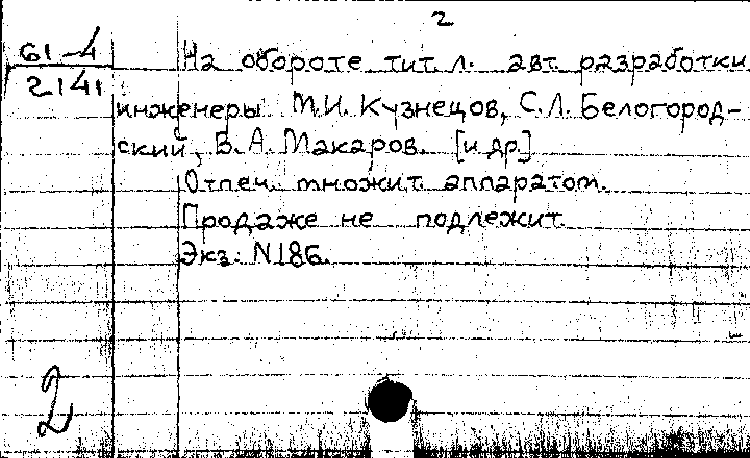 2
61-4
2141
На обороте тит. л. авт. разработки
инженеры М.И. Кузнецов, С.Л. Белогород-
ский, В.А. Макаров. [и др.]
Отпеч. множит. аппаратом.
Продаже не подлежит
Экз. N186.
2